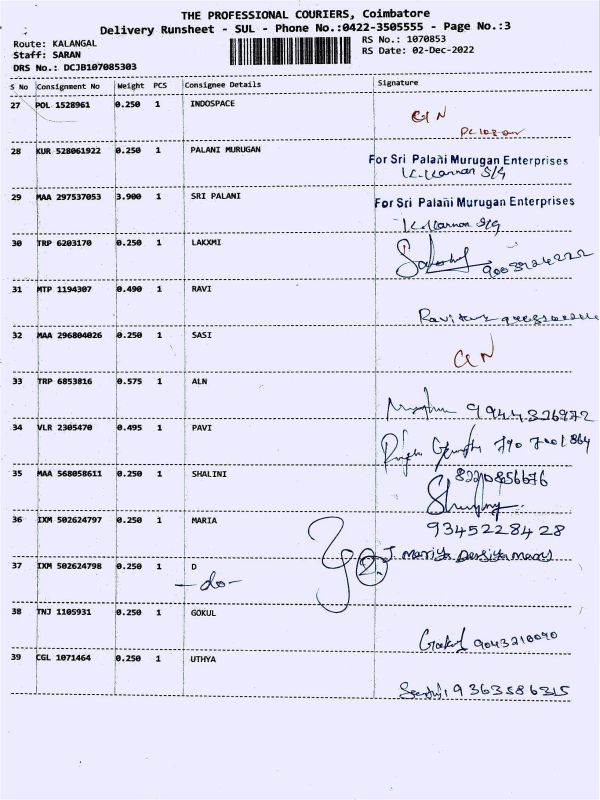 THE PROFESSIONAL COURIERS, Coimbatore
Delivery Runsheet - SUL - Phone No.:0422-3505555 - Page No.:3
Route: KALANGAL
RS No.: 1070853
Staff: SARAN
RS Date: 02-Dec-2022
DRS No.: DCJB107085303
S No Consignment No Weight PCS Consignee Details Signature
27 POL 1528961 0.250 1 INDOSPACE
28 KUR 528061922 0.250 1 PALANI MURUGAN
For Sri Palani Murugan Enterprises
K. Kannan S/G
29 MAA 297537053 3.900 1 SRI PALANI
For Sri Palani Murugan Enterprises
K. Kannan S/G
30 TRP 6203170 0.250 1 LAKXMI
31 MTP 1194307 0.490 1 RAVI
32 MAA 296804026 0.250 1 SASI
33 TRP 6853816 0.575 1 ALN
9944326972
34 VLR 2305470 0.495 1 PAVI
790 7001864
35 MAA 568058611 0.250 1 SHALINI
36 IXM 502624797 0.250 1 MARIA
9345228428
37 IXM 502624798 0.250 1 D
-do-
38 TNJ 1105931 0.250 1 GOKUL
Gokul 9043210090
39 CGL 1071464 0.250 1 UTHYA
9363586315